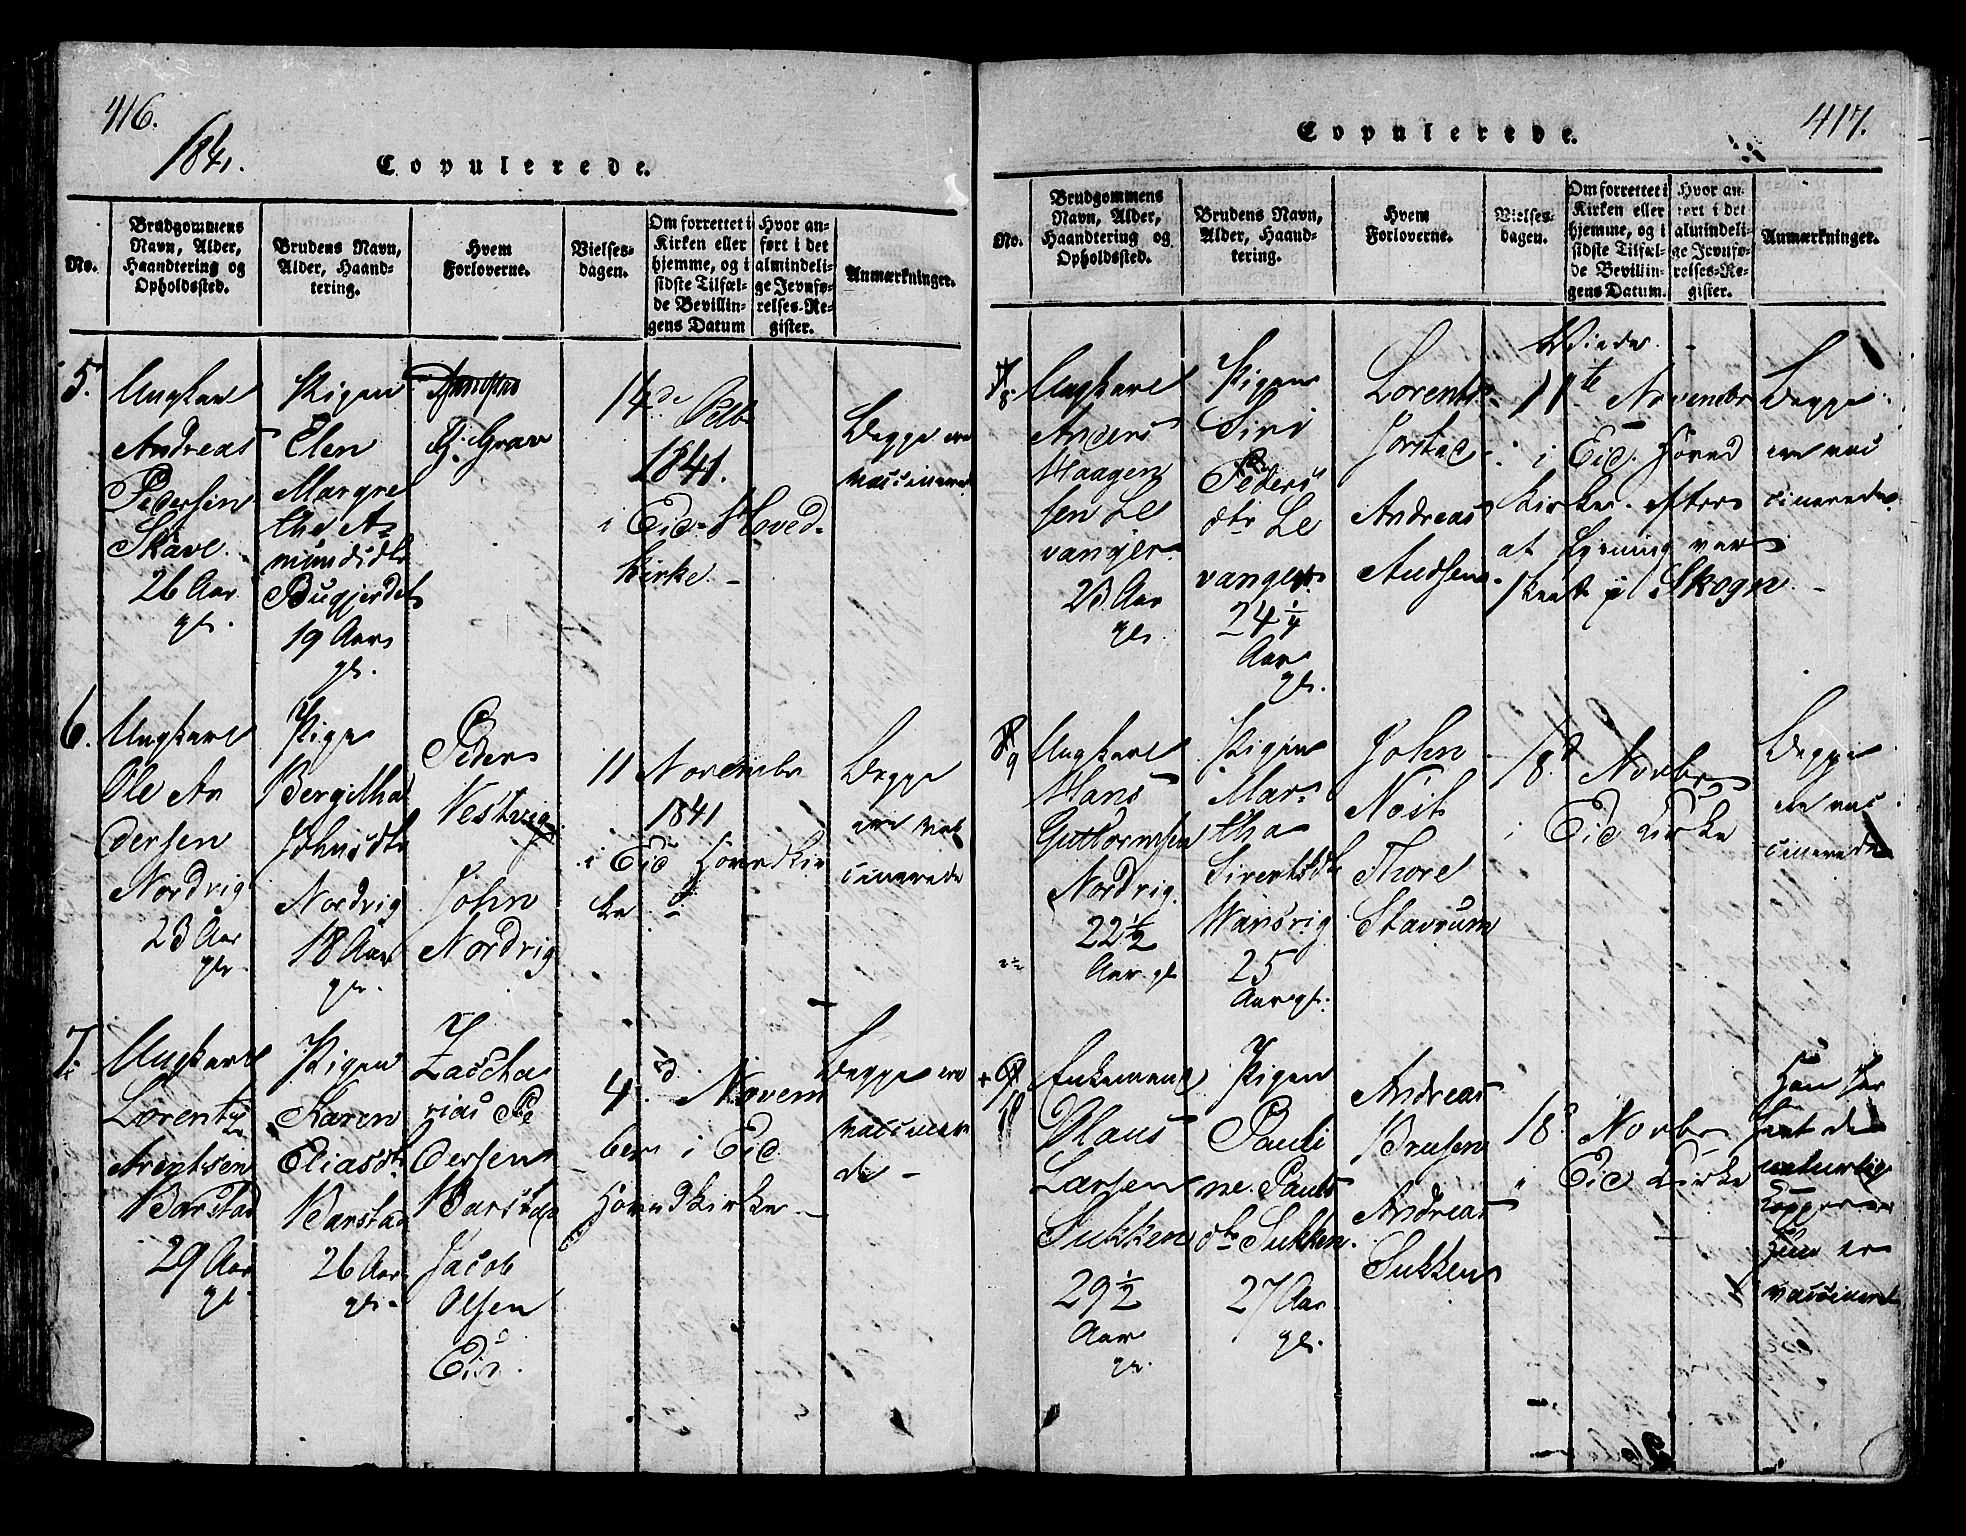 416.
1841.
Copulerede.
No.
Brudgommens
Navn, Alder,
Haandtering og
Opholdssted.
Brudens Navn,
Alder, Haand-
tering.
Hvem
Forloverne.
Vielses-
dagen.
Om forrettet i
Kirken eller
hjemme, og i
sidste Tilfæl-
de Bevillin-
gens Datum
Hvor an-
ført i det
almindeli-
ge Jevnfø-
relses-Re-
gister.
Anmærkninger.
5.
Ungkarl
Andreas
Pedersen
Skave.
26 Aar
gl.
Pigen
Elen
Margre
the A-
mundsdtr
Bugjerdet
19 Aar
gl.
G. Grav
14de Octb
1841.
i Eid Hoved-
kirke.
Begge ere
vaccinerede
6.
Ungkarl
Ole An
dersen
Nordvig
23 Aar
gl.
Pige
Bergitha
Johnsdtr
Nordvig
18 Aar
gl.
Peder
Vestvig
John
Nordvig
11 Novembr
1841
i Eid Hovedkir
ke
Begge
ere vac
cinerede
7.
Ungkarl
Lorentz
Arentsen
Barstad
29 Aar
gl.
Pigen
Karen
Eliasdtr
Barstad
26 Aar
gl.
Zascha
rias Pe
dersen
Barstad
Jacob
Olsen
Eid.
4d Novem
ber i Eid
Hovedkirke
Begge ere
vaccinere
de
417.
Copulerede.
No.
Brudgommens
Navn, Alder,
Haandtering og
Opholdssted.
Brudens Navn,
Alder, Haand-
tering.
Hvem
Forloverne.
Vielses-
dagen.
Om forrettet i
Kirken eller
hjemme, og i
sidste Tilfæl-
de Bevillin-
gens Datum.
Hvor an-
ført i det
almindeli-
ge Jevnfø-
relses-Re-
gister.
Anmærkninger.
8
Ungkarl
Anders
Haagen
sen Le
vanger
23 Aar
gl.
Pigen
Siri
Peders
dtr Le
vanger
24 1/4
Aar
gl.
Lorents
Jorstad
Andreas
Andsen
Viede
11te Novembr
i Eid Hoved
kirke efter
at Lysning var
skeet i Skogn
Begge
ere vac
cinerede
9
Ungkarl
Hans
Guttormsen
Nordvig
22 1/2
Aar gl
Pigen
Mar-
tha
Sivertsdtr
Hansvig
25
Aar gl.
John
Nöst
Thore
Stavrum
18d Novbr
i Eid Kirke
Begge
ere vac
cinerede
10
Enkemand
Claus
Larsen
Sukken
29 1/2
Aar
gl.
Pigen
Pauli
ne Pauls
dtr Sukken.
27 Aar
gl.
Andreas
Brusen
Andreas
Sukken
18d Novbr
i Eid Kirke
Han har
havt de
naturlige
Kopper
Hun er
vaccineret